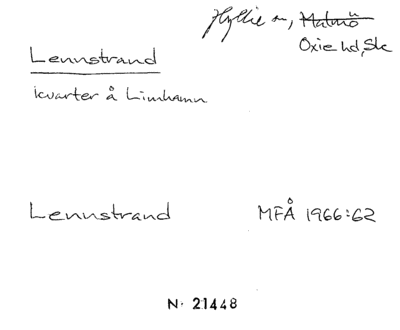 Hyllie sn, Malmö
Oxie hd, Sk
Lennstrand
kvarter å Limhamn
Lennstrand MFÅ 1966:62
N. 21448